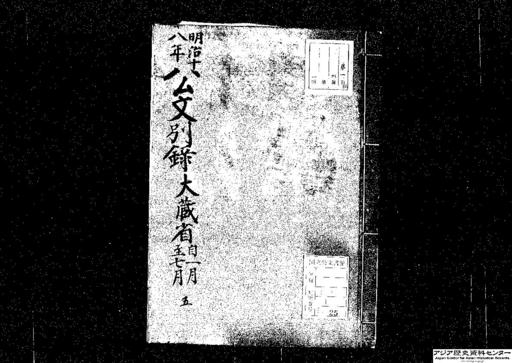 明治十
八年
公文別録
大蔵省
自一月
至七月
五
25
アジア歴史資料センター
Japan Center for Asian Historical Records